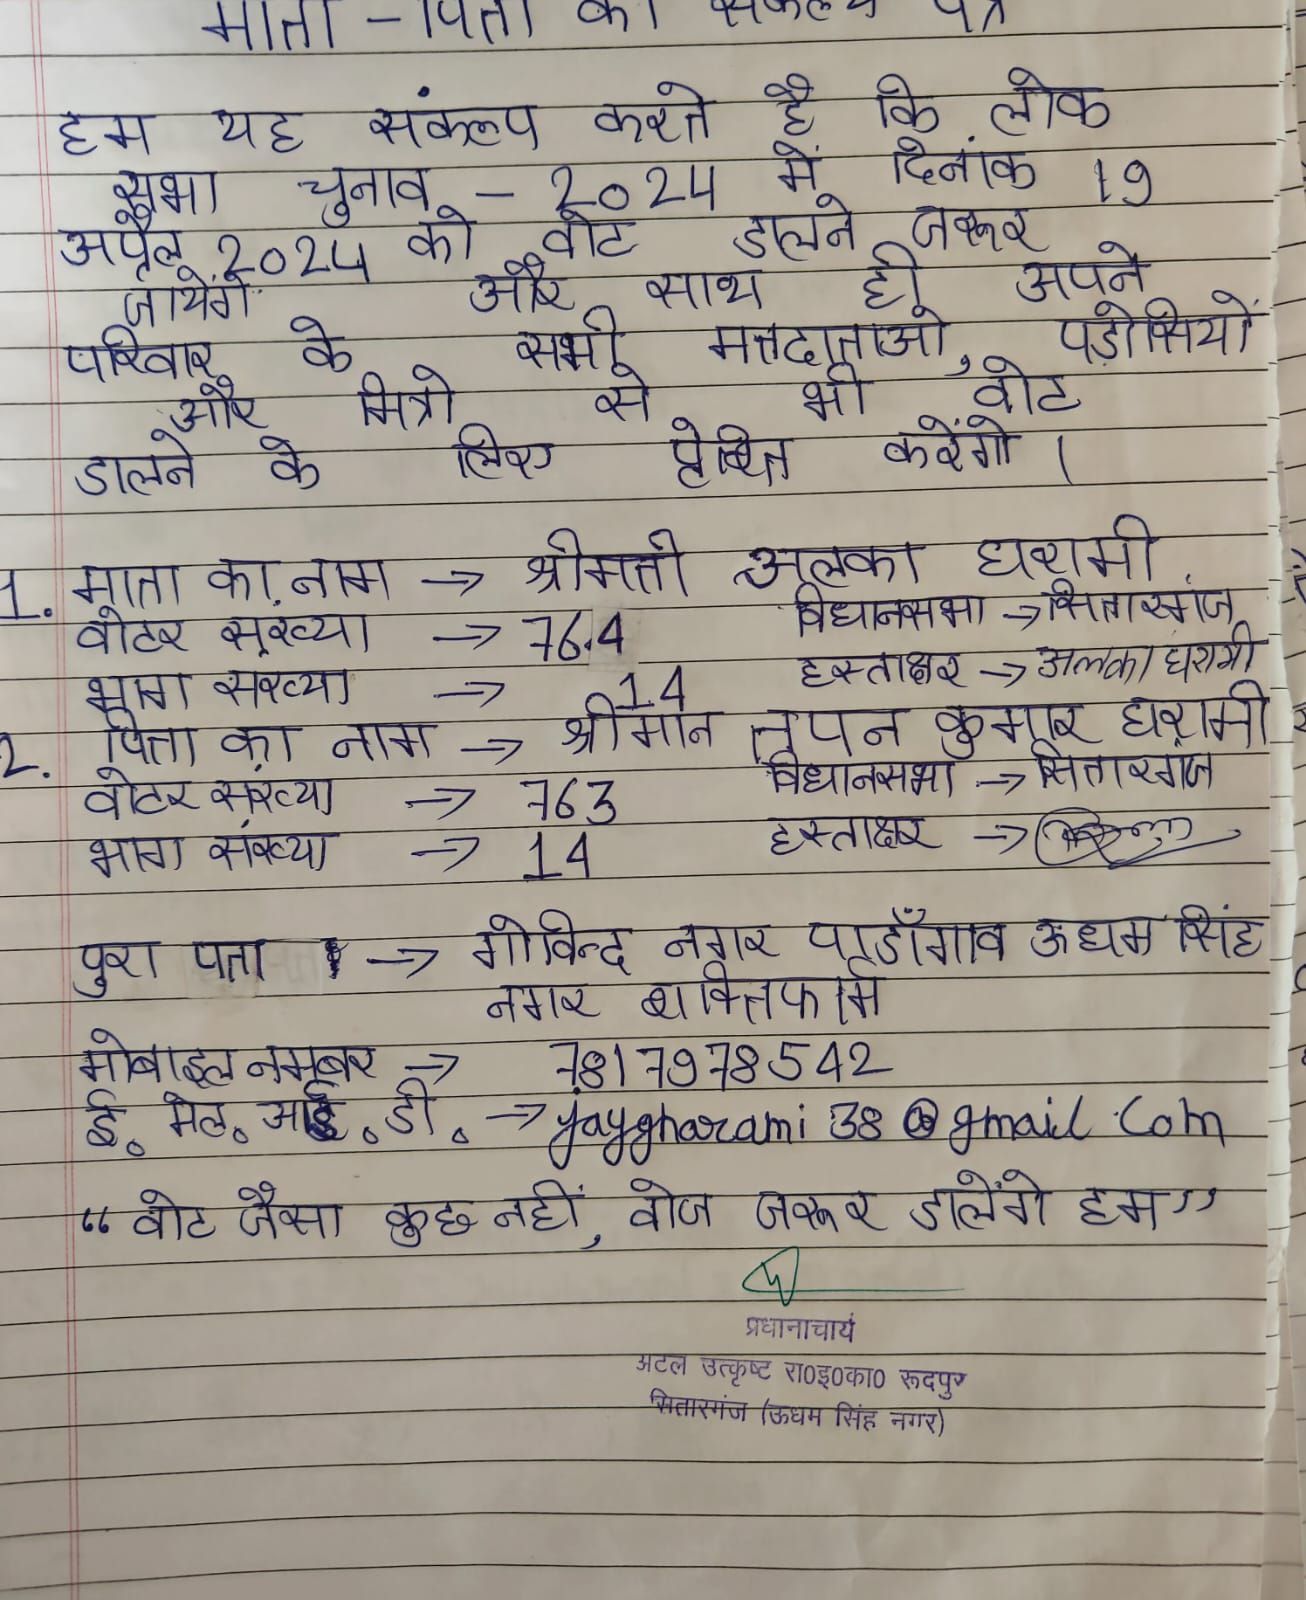 माता - पिता का संकल्प पत्र
हम यह संकल्प करते है कि लोक
सभा चुनाव - 2024 में दिनांक 19
अप्रैल 2024 को वोट डालने जरूर
जायेगें और साथ ही अपने
परिवार के सभी मतदाताओ, पड़ोसियों
और मित्रो से भी वोट
डालने के लिए प्रेरित करेंगो ।
1. माता का नाम → श्रीमती अलका घरामी
वोटर संख्या → 764 विधानसभा → सितारगंज
भाग संख्या → 14 हस्ताक्षर → अलका घरामी
2. पिता का नाम → श्रीमान तपन कुमार घरामी
वोटर संख्या → 763 विधानसभा → सितारगंज
भाग संख्या → 14 हस्ताक्षर →
पुरा पता → गोविन्द नगर पाड़ाँगाव ऊधम सिंह
नगर शक्तिफार्म
मोबाइल नम्बर → 7817978542
ई. मेल. आई. डी. → jaygharami38@gmail Com
“ वोट जैसा कुछ नहीं, वोज जरूर डालेंगे हम”
प्रधानाचार्य
अटल उत्कृष्ट रा०इ०का० रूदपुर
सितारगंज (ऊधम सिंह नगर)